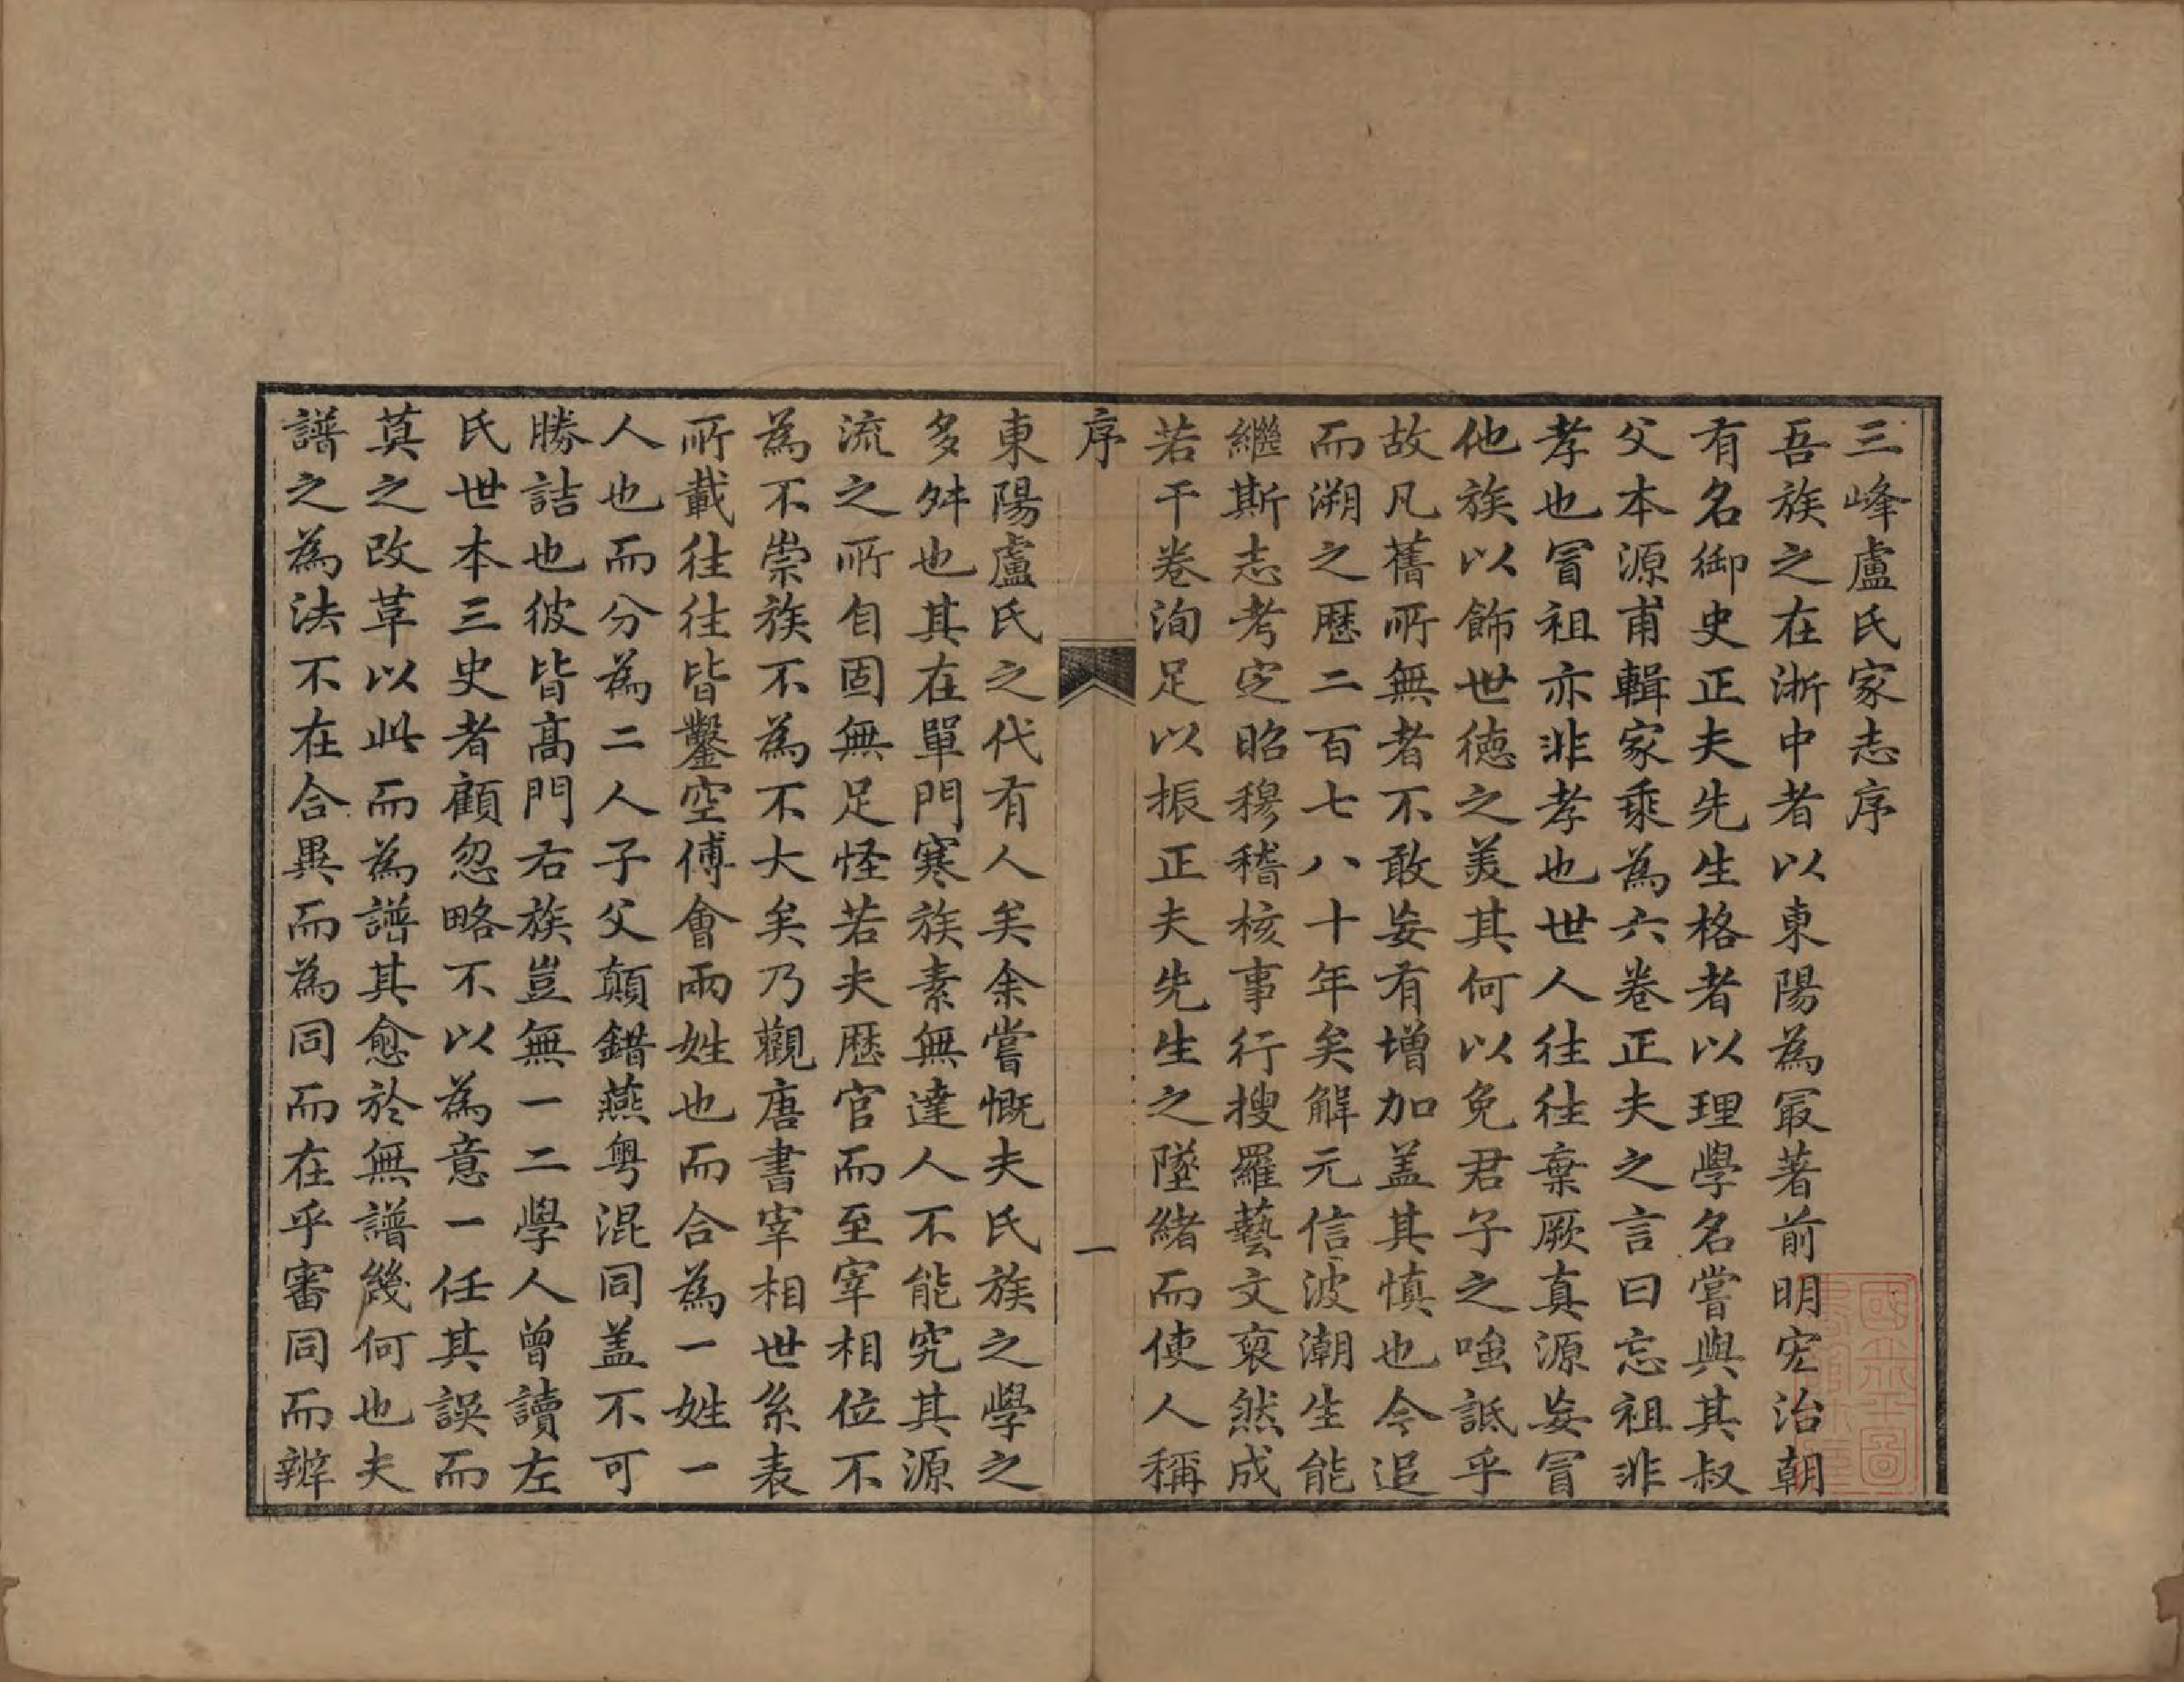 三峰盧氏家志序
吾族之在浙中者以東陽為冣著前明宏治朝
有名御史正夫先生格者以理學名嘗與其叔
父本源甫輯家乘為六卷正夫之言曰忘祖非
孝也冒祖亦非孝也世人往往棄厥真源妄冒
他族以飾世徳之美其何以免君子之嗤詆乎
故凡舊所無者不敢妄有增加盖其慎也今追
而溯之歷二百七八十年矣解元信波潮生能
繼斯志考定昭穆稽核事行搜羅藝文裒然成
若干卷洵足以振正夫先生之墜緒而使人稱
序
一
東陽盧氏之代有人矣余嘗慨夫氏族之學之
多舛也其在單門寒族素無達人不能究其源
流之所自固無足怪若夫歷官而至宰相位不
為不崇族不為不大矣乃觀唐書宰相世系表
所載往往皆鑿空傅會兩姓也而合為一姓一
人也而分為二人子父顛錯燕粤混同盖不可
勝詰也彼皆高門右族豈無一二學人曾讀左
氏世本三史者顧忽略不以為意一任其誤而
莫之改革以此而為譜其愈於無譜幾何也夫
譜之為法不在合異而為同而在乎審同而辨